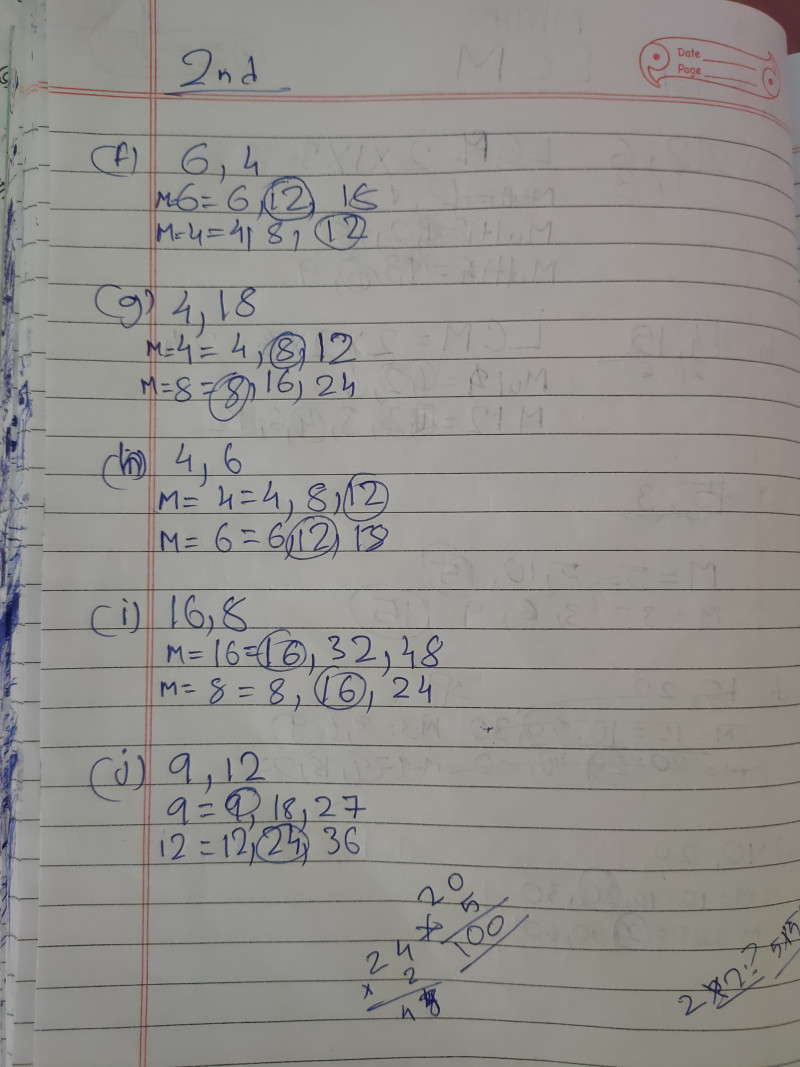 2nd
Date
Page
(f) 6, 4
M-6= 6, 12, 18
M=4=4, 8, 12
(g) 4, 18
M=4=4, 8, 12
M=8=8, 16, 24
(h) 4, 6
M= 4=4, 8, 12
M= 6=6, 12, 18
(i) 16, 8
M=16=16, 32, 48
M= 8=8, 16, 24
(j) 9, 12
9=9, 18, 27
12=12, 24, 36
20
5
100
24
x 2